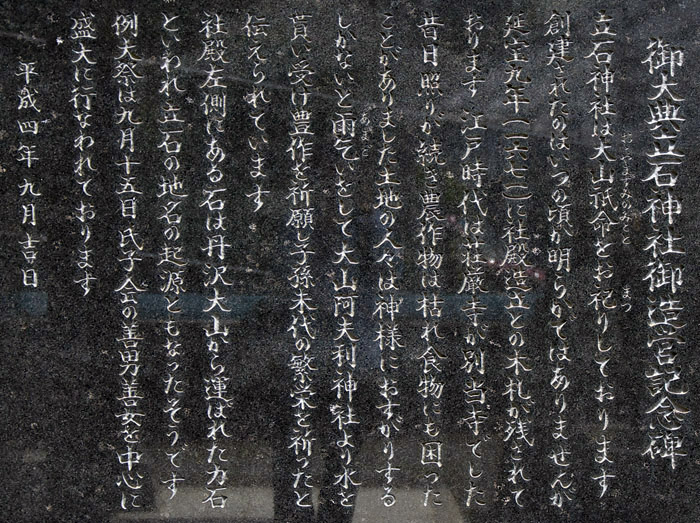 御大典立石神社御造営記念碑
立石神社は大山祇命をお祀りしております
おおやまずみのみこと
まつ
創建されたのはいつの頃か明らかではありませんが
延宝九年(一六七一)に社殿造立との木札が残されて
あります 江戸時代は荘厳寺が別当寺でした
昔日照りが続き農作物は枯れ食物にも困った
ことがありました土地の人々は神様におすがりする
しかないと雨乞いをして大山阿夫利神社より水を
あまご
貰い受け豊作を祈願し子孫末代の繁栄を祈ったと
伝えられています
社殿左側にある石は丹沢大山から運ばれた力石
といわれ立石の地名の起源ともなったそうです
例大祭は九月十五日氏子会の善男善女を中心に
盛大に行なわれております
平成四年九月吉日